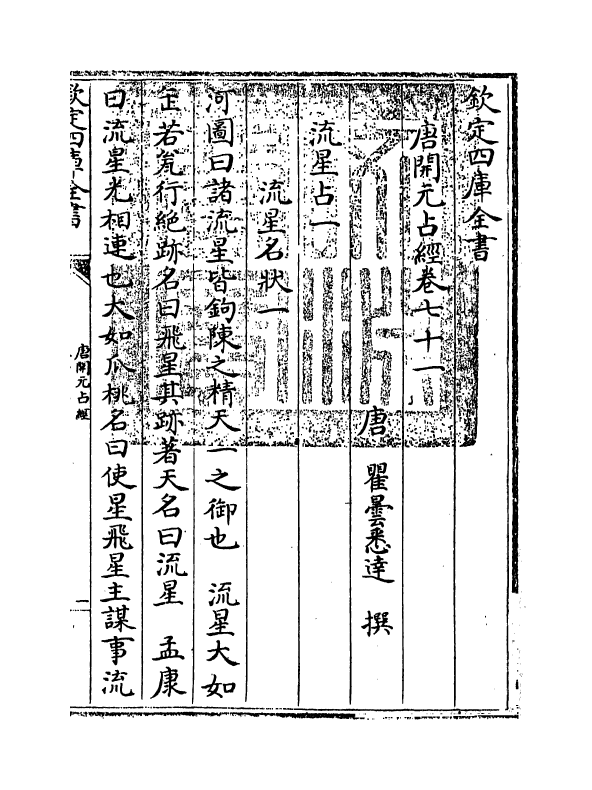 欽定四庫全書
唐開元占經卷七十一
唐　瞿曇悉達　撰
流星占一
流星名狀一
河圖曰諸流星皆鉤陳之精天一之御也　流星大如
缶若甕行絶跡名曰飛星其跡著天名曰流星　孟康
曰流星光相連也大如瓜桃名曰使星飛星主謀事流
欽定四庫全書
唐開元占經
一